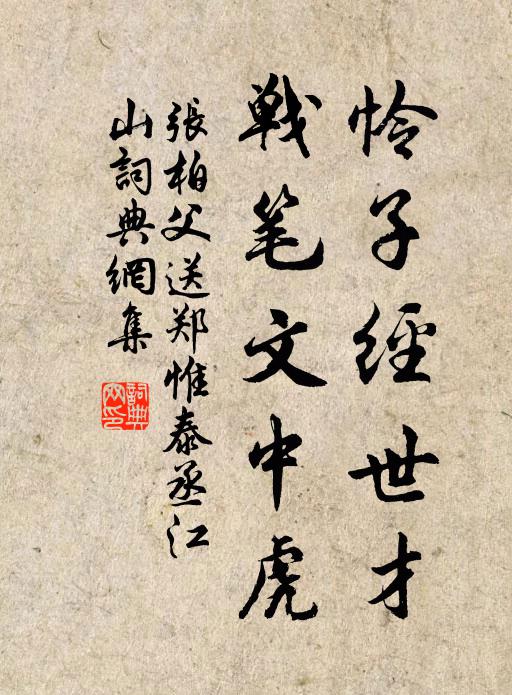 怜子經世才
戦笔文中虎
張柏父送郑惟泰丞江
山詞典網集
詞典
网印